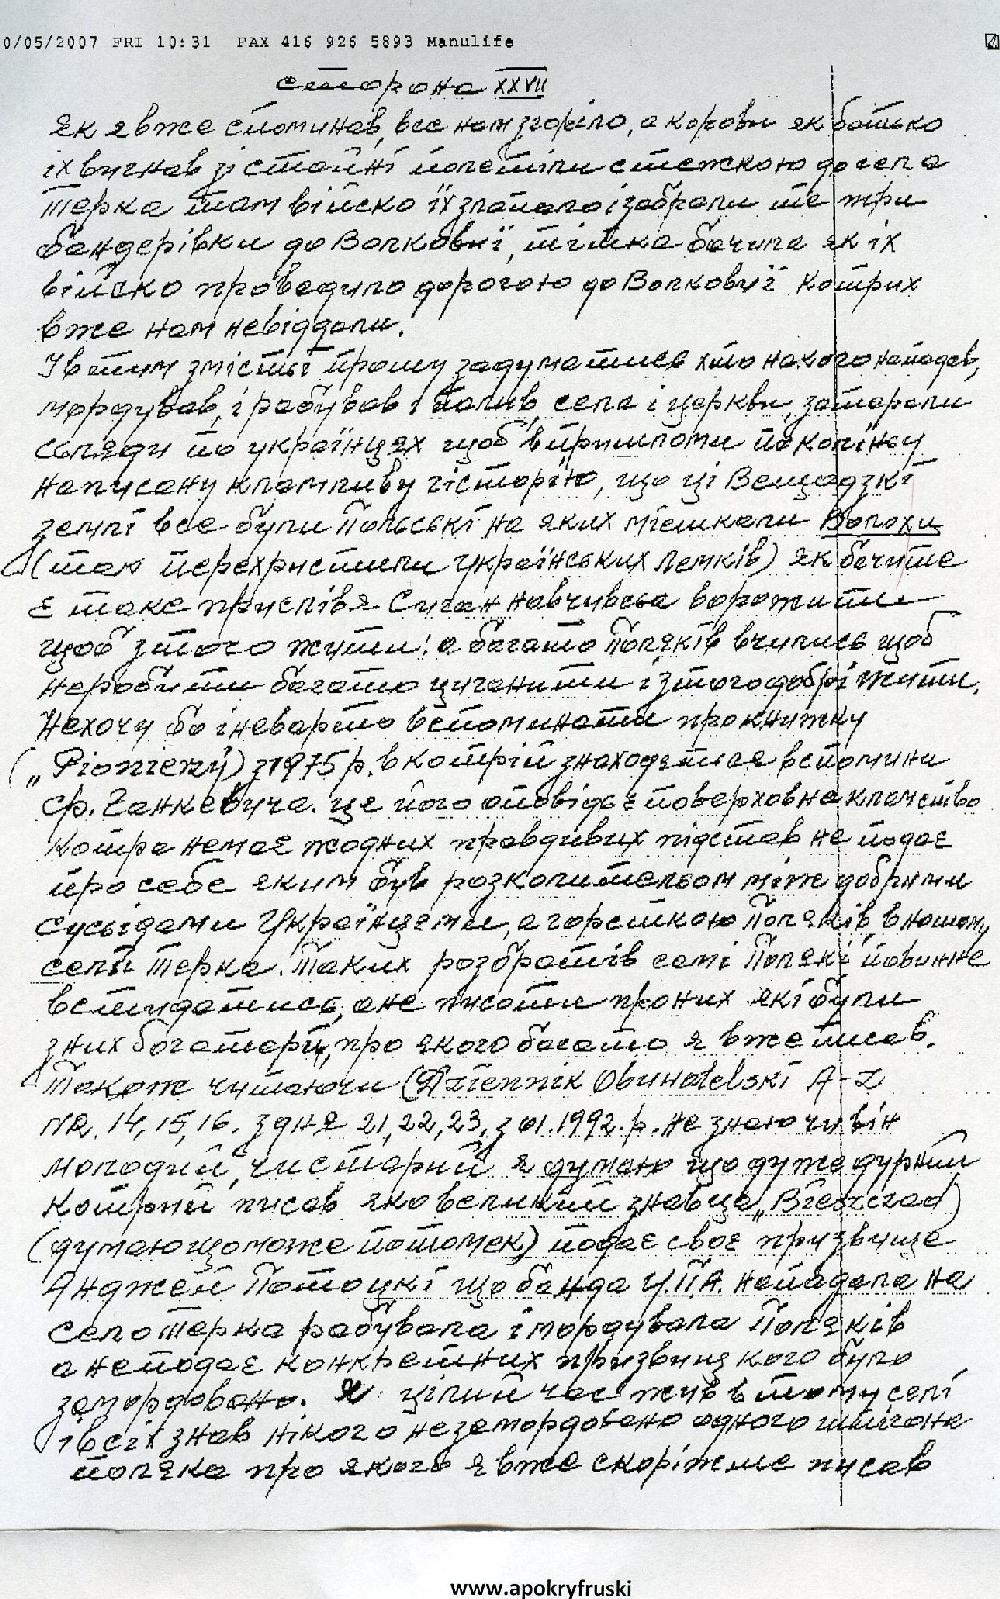 0/05/2007 FRI 10:31 FAX 416 926 5893 Manulife
сторона XXVII
Як я вже споминав, все нам згоріло, а корови як батько
їх вигнав зі стайні полетіли стежкою до села
Терка там війско їх злапало і забрали те три
бандерівки до Волковиї, тітка бачила як їх
війско провадило дорогою до Волковиї котрих
вже нам невіддали.
І втим змісті прошу задуматись хто на кого нападав,
мордував, і рабував і палив, села і церкви, затерали
сьляди по українцях щоб
написану кламливу гісторію, що ці Бещадзкі
землі все були Польські на яких мешкали Волохи
(так перехристили Українських Лемків) як бачите
є таке прислівя Циган навчився ворожити
щоб з того жити: а багато Поляків вчились щоб
наробити багато циганити і з того добрі жити.
Нехочу бо і неварто вспоминати про книжку
(„Pionierzy") з 1975 р. в котрій знаходятся вспомини
Ф. Ганкевича. це його оповідає поверховна клачство
котра немає жодних правдивих підстав не подає
про себе яким був розколительом між добрими
сусідами Українцями, а горсткою Поляків, в нашому
селі Терка. Таких розбратів самі Поляки повинне
встидатись, а не писати про них які були
з них богатері, про якого багато я вже писав.
Також читаючи (Dziennik Obywatelski A-Z
NR. 14, 15, 16. з дня 21, 22, 23, з 01.1992.р. не знаю чи він
молодий, чи старий я думаю що дуже дурний
котрий писав яко великий знавца „Bieszczad)
(думаю що може потомек) подає своє призвище
Анджей Потоцкі що банда У.П.А. нападала на
село Терка рабувала і мордувала Поляків
а неподає конкретних призвищ кого було
замордовано. Я цілий час жив в тому селі
і всіх знав нікого незамордовано одного шпігона
поляка про якого я вже скоріжше писав
www.apokryfruski